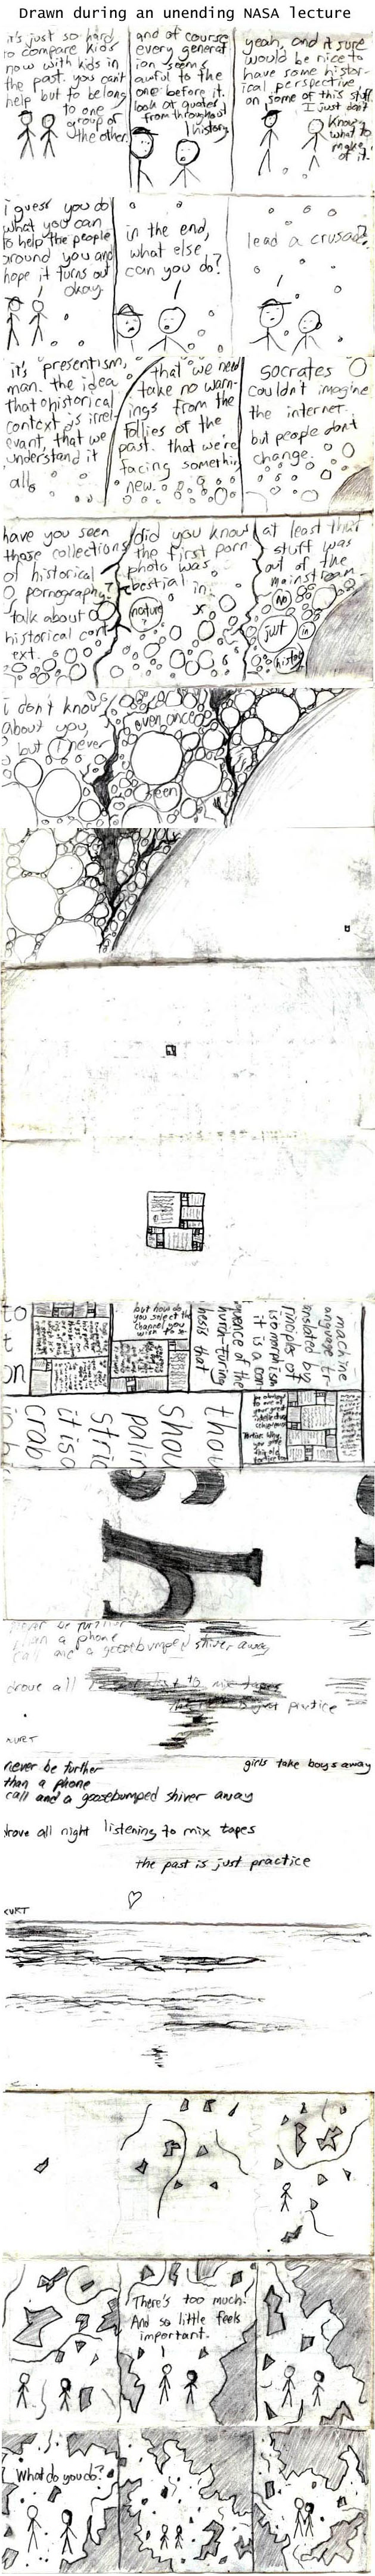 Drawn during an unending NASA lecture
it's just so hard
to compare kids
now with kids in
the past. you can't
help but to belong
to one
group or
the other.
and of course
every generat
ion seems
awful to the
one before it.
look at quotes
from throughout
history
yeah, and it sure
would be nice to
have some histor-
ical perspective
on some of this stuff.
I just don't
know
what to
make
of it.
i guess you do
what you can
to help the people
around you and
hope it turns out
okay.
in the end,
what else
can you do?
lead a crusade?
it's presentism,
man. the idea
that historical
context is irrel-
evant, that we
understand it
all.
that we need
take no warn-
ings from the
follies of the
past. that we're
facing something
new.
Socrates
couldn't imagine
the internet.
but people don't
change.
have you seen
those collections
of historical
pornography?
talk about
historical cont
ext.
did you know
the first porn
photo was
bestial
in
nature
?
at least that
stuff was
out of the
mainstream
no
just
in
history
i don't know
about you,
but I never
even once
seen
to
t
on
but how do
you select the
channel you
wish to
machine
language tr-
anslated by
principles of
isomorphism
it is a con
quence of the
church-turing
thesis that
crab
it iso
stric
palin
shou
thou
never be further
than a phone
call and a goosebumped shiver away
drove all
to mix tapes
just practice
KURT
never be further
than a phone
call and a goosebumped shiver away
girls take boys away
drove all night listening to mix tapes
the past is just practice
KURT
There's too much.
And so little feels
important.
What do you do?